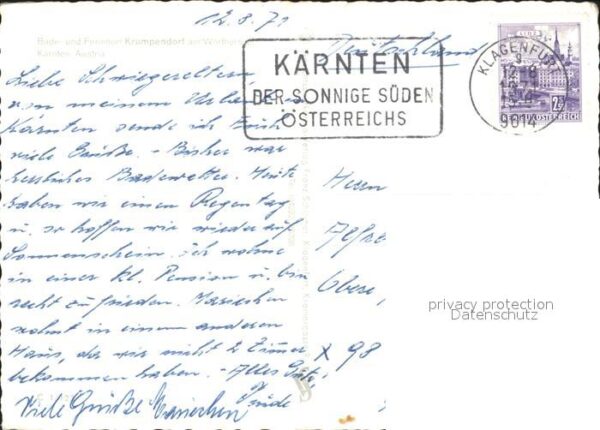 12.8.71
Bade- und Ferienort Krumpendorf am Wörther
Kärnten, Austria
Deutschland
KÄRNTEN
DER SONNIGE SÜDEN
ÖSTERREICHS
KLAGENFURT
9
12-8
9014
REPUBLIK ÖSTERREICH
Liebe Schwiegereltern,
aus meinem Urlaub in
Kärnten sende ich Euch
viele Grüße. - Bisher war
herrliches Badewetter. Heute
haben wir einen Regentag
u. so hoffen wir wieder auf
Sonnenschein. Ich wohne
in einer kl. Pension u. bin
recht zufrieden. Mariechen
wohnt in einem anderen
Haus, da wir nicht 2 Zimmer
bekommen haben. - Alles Gute,
Viele Grüße Mariechen
Herrn
Alfre
Obere
x 98
privacy protection
Datenschutz